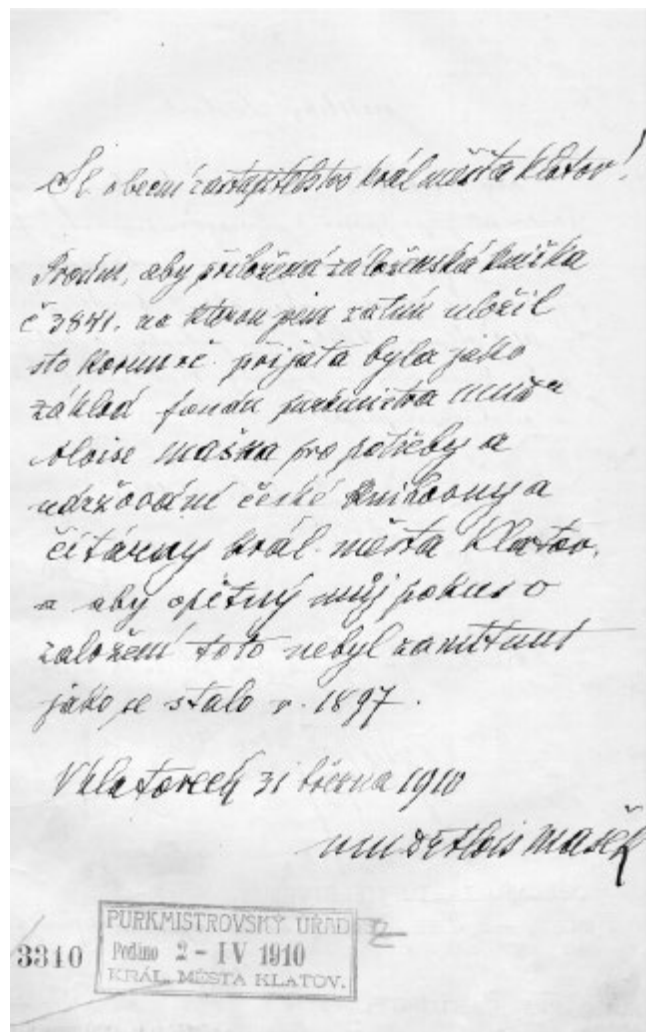 Sl. obecní zastupitelstvo král. města Klatov!
Prosím, aby přiložená záloženská knížka
č 3841. na kterou jsem zatím uložil
sto korun rč. přijata byla jako
základ fondu purkmistra MUDra
Aloise Maška pro potřeby a
udržování české knihovny a
čítárny král. města Klatov,
a aby opětný můj pokus o
založení toto nebyl zamítnut
jako se stalo r. 1897.
V Klatovech 31 března 1910
MUDr Alois Mašek
3310
PURKMISTROVSKÝ ÚŘAD
Podáno 2 - IV 1910
KRÁL. MĚSTA KLATOV.